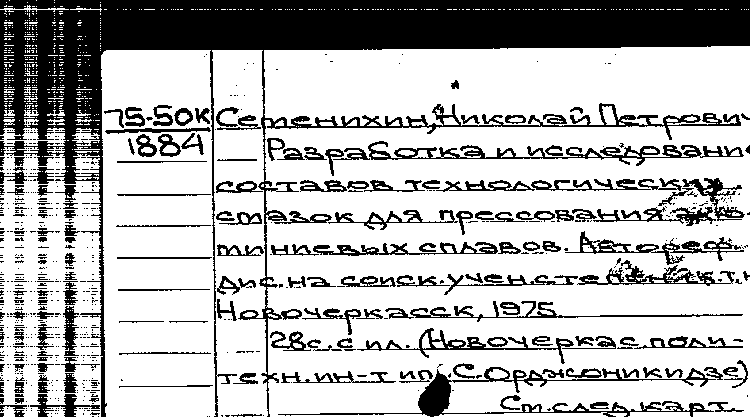 75-50К Семенихин, Николай Петрович
1884 Разработка и исследование
составов технологических
смазок для прессования алю-
миниевых сплавов. Автореф.
дис. на соиск. учен. степени к.т.н
Новочеркасск, 1975.
28с. с ил. (Новочеркас. поли-
техн. ин-т им. С. Орджоникидзе)
См. след. карт.